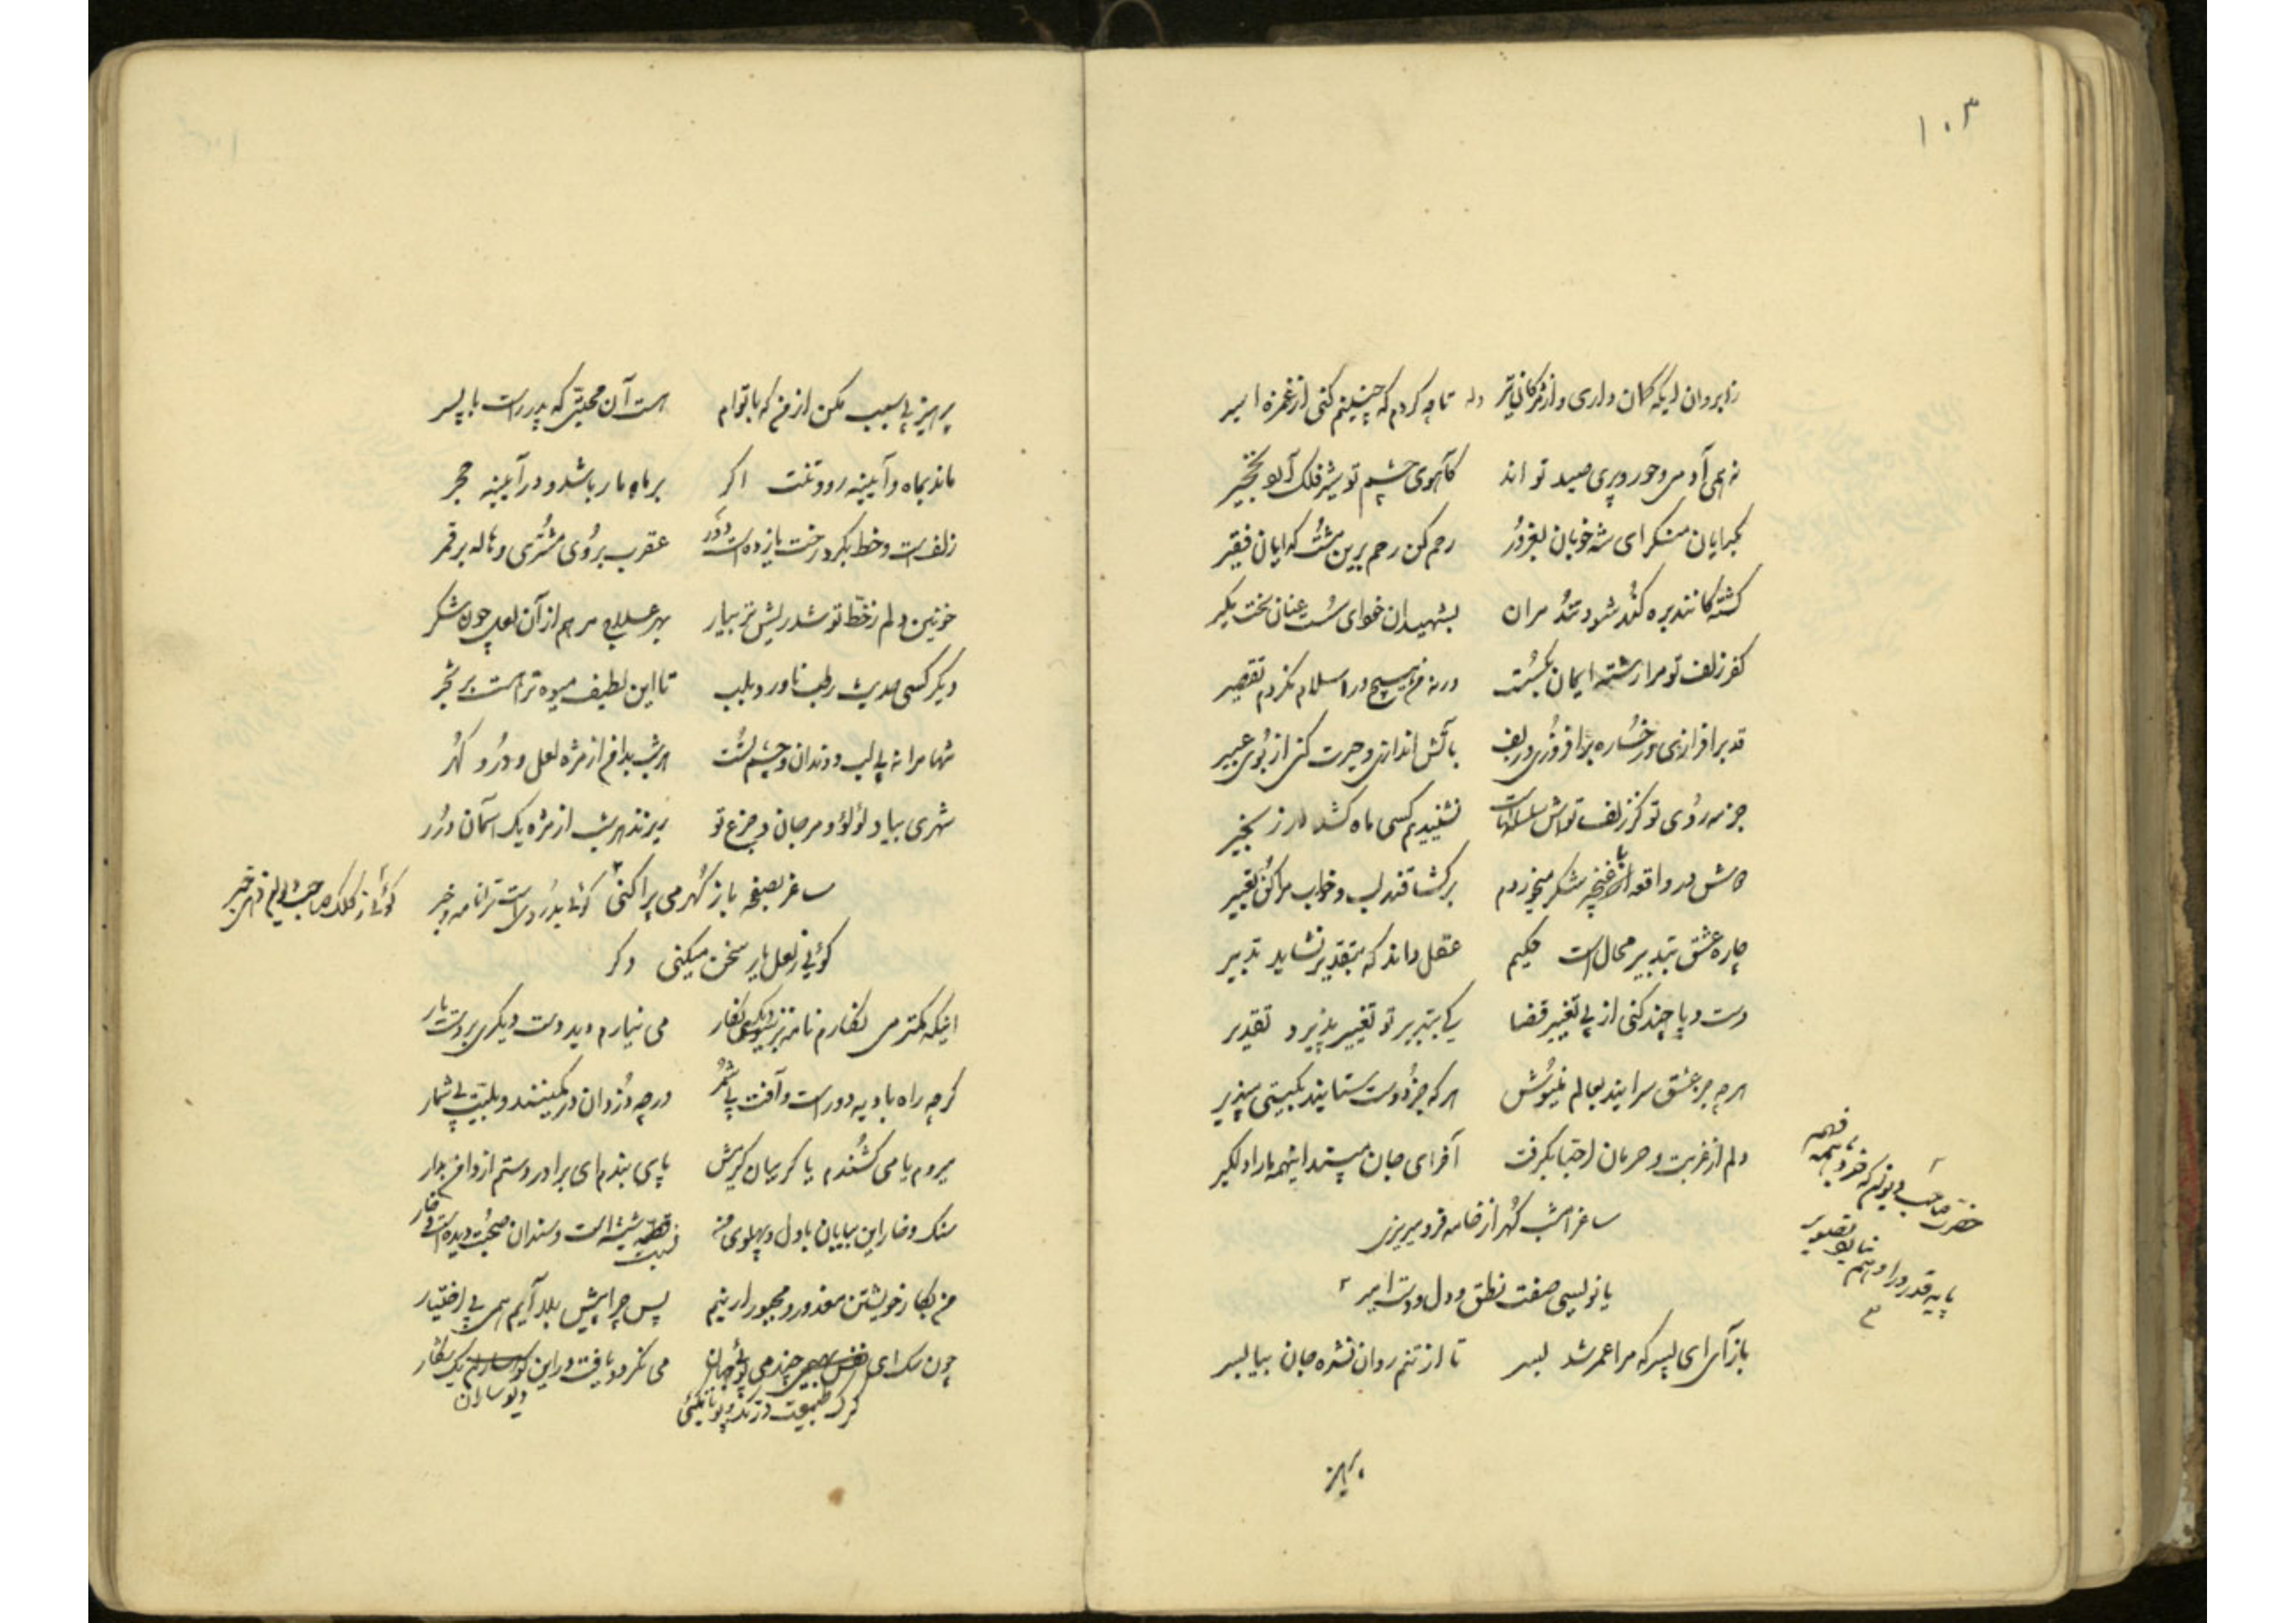 ۱۰۳
زابروان ایکه کمان داری و از مژگان تیر وله تا چه کردم که چنینم کنی از غمزه اسیر
نه همی آدمی و حور و پری صید تو اند کآهوی چشم تو شیر فلک آرد نخجیر
بگدایان منگر ای شه خوبان بغرور رحم کن رحم برین مشت گدایان فقیر
کشتگانند بره کند شود تند مران بشهیدان خود ای سست عنان سخت مگیر
کفر زلف تو مرا رشته ایمان بگسست ورنه من هیچ در اسلام نکردم تقصیر
قد برافرازی و رخساره برافروزی و زلف بآتش اندازی و حیرت کنی از بوی عبیر
جز مه روی تو کز زلف تواش سلسله‌هاست نشنیدم کسی ماه کشد در زنجیر
دوش در واقعه با غنچه شکر میخوردم برگشا قند لب و خواب مرا کن تعبیر
چاره عشق بتدبیر محال است حکیم عقل داند که بتقدیر نشاید تدبیر
دست و پا چند کنی از پی تغییر قضا کی بتدبیر تو تغییر پذیرد تقدیر
هرچه جز عشق سرایند بعالم منیوش هرکه جز دوست ستایند بگیتی مپذیر
دلم از غربت و حرمان احبا بگرفت آخر ای جان مپسند اینهمه ما را دلگیر
ساغر امشب گهر از خامه فرو میریزی
یا نویسی صفت نطق و دل و دست امیر
حضرت صاحب دیوان که خرد با همه فهم
پایه قدر ورا وهم نیارد تصویر
باز آی ای پسر که مرا عمر شد بسر تا از تنم روان نشده جان بیا بسر
پرهیز
پرهیز بی سبب مکن از من که با توام هست آن محبتی که پدر راست با پسر
ماند بماه و آیینه رو و تنت اگر بر ماه مار باشد و در آیینه حجر
زلف است و خط بگرد رخت یا زده است دور عقرب بروی مشتری و هاله بر قمر
خونین دلم ز خط تو شد ریش تر بیار بهر علاج مرهم از آن لعل چون شکر
دیگر کسی حدیث رطب ناورد بلب تا این لطیف میوه تر است بر شجر
تنها مرا نه بی لب و دندان و چشم تست هر شب بدامن از مژه لعل و در و گهر
شهری بیاد لؤلؤ و مرجان و جزع تو ریزند هر شب از مژه یک آسمان درر
ساغر بصفحه باز گهر می پراکنی گوئی بدر و راست ترا نامه و خبر
گوئی ز کلک صاحب دیوان دهی خبر
گوئی ز لعل یار سخن میکنی دگر
اینکه مکتر می نگارم نامه نزدیکی نگار می نیارم دید دست دیگری بر دست یار
گرچه راه بادیه دور است و آفت بی شمر ورچه دزدان در کمینند و بلیت بی شمار
میروم یا می کشندم یا گریبان گیرمش پای بندم ای برادر دستم از دامن بدار
سنگ و خار این بیابان با دل و پهلوی من نسبت شیشه است و سندان صحبت دیده است و خار
من بکار خویشتن معذور و مجبورار نیم پس چرا پیش بلا آیم همی بی اختیار
چون سگ ای نفس بهیمی چند می پوئی جهان می نگردد یافت در این کوهسارم یک شکار
گرگ طبیعت درنده پوئی دیو ساران